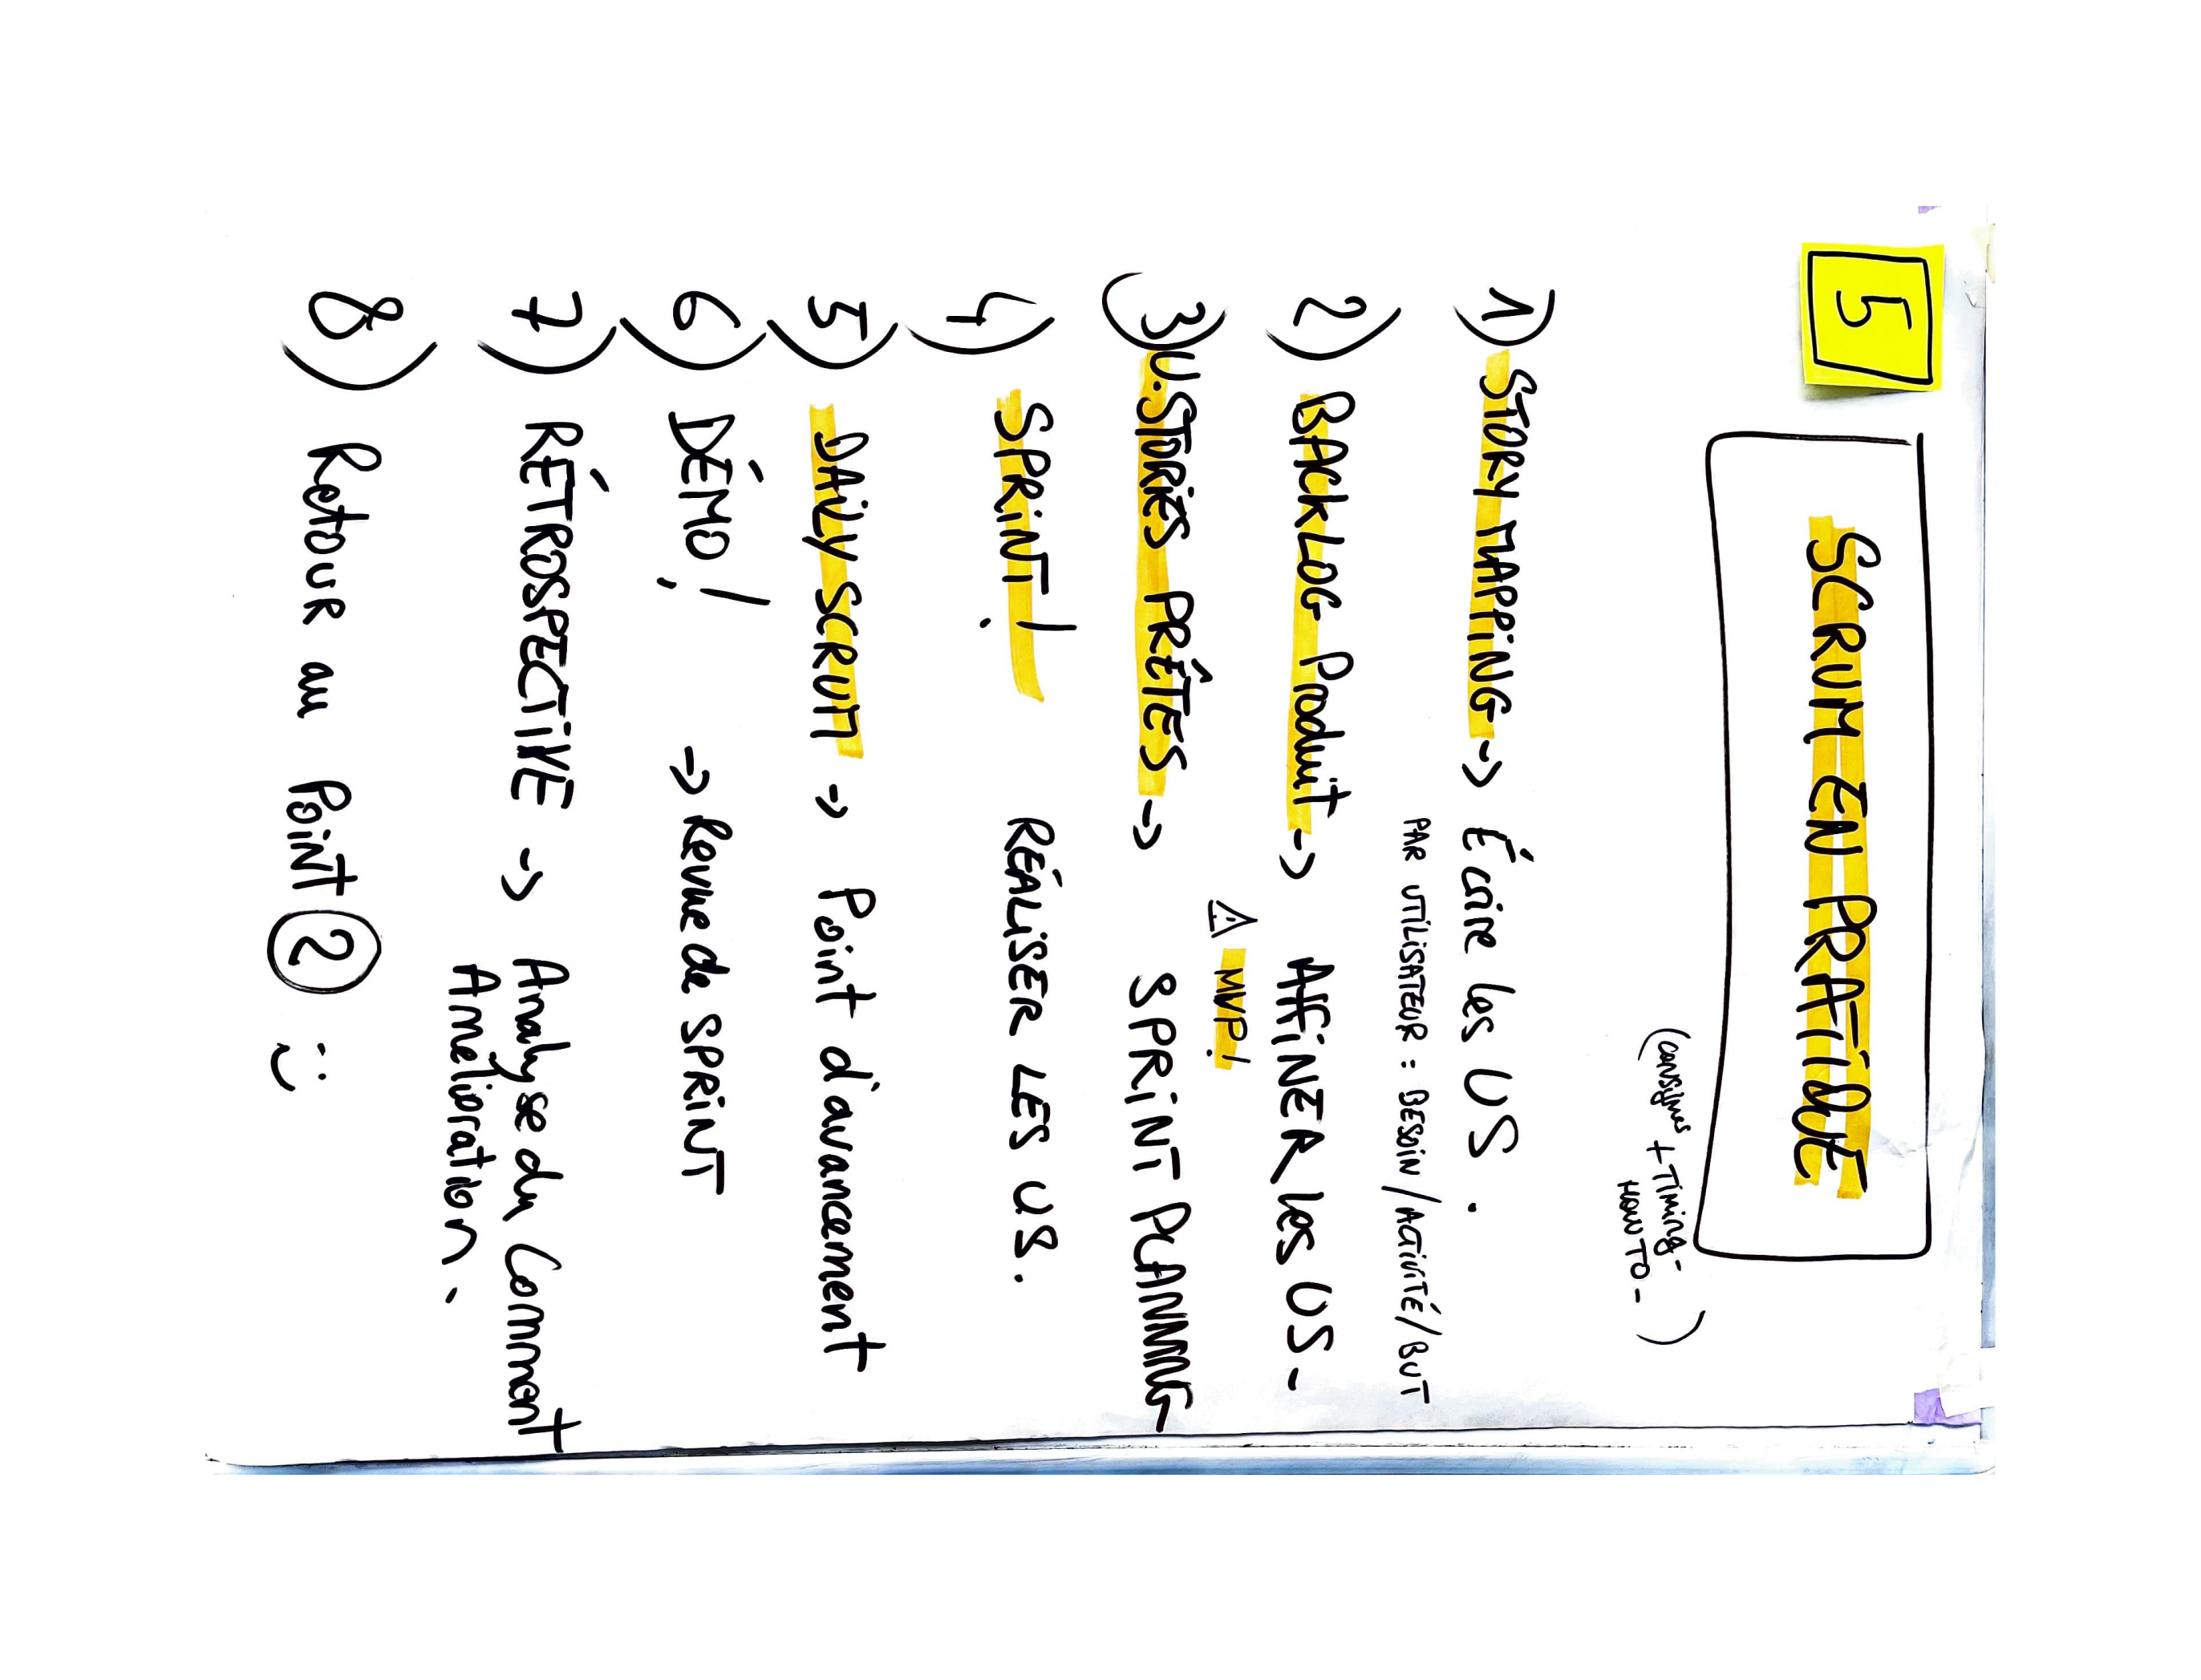 5
SCRUM EN PRATIQUE
(consignes + Timing -
HOW TO - )
1) STORY MAPPING -> Écrire les US.
PAR UTILISATEUR : BESOIN / ACTIVITÉ / BUT
2) BACKLOG Produit -> AFFINER les US -
⚠ MVP!
3) U.STORIES PRÊTES -> SPRINT PLANNING
4) SPRINT! RÉALISER LES US.
5) DAILY SCRUM -> Point d'avancement
6) DÉMO! -> Revue de SPRINT
7) RÉTROSPECTIVE -> Analyse du Comment
Amélioration.
8) Retour au POINT 2 :)